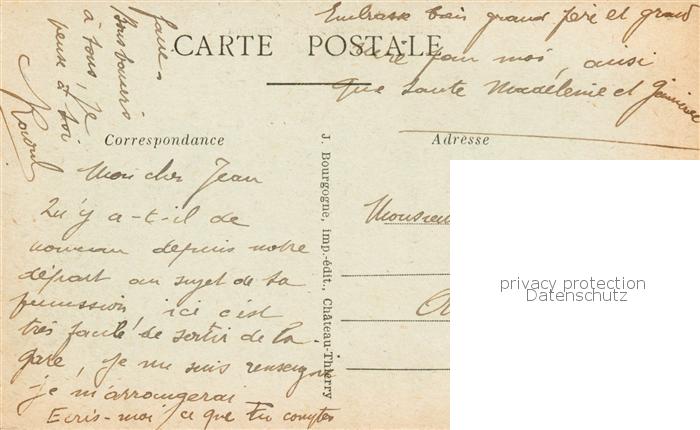 Embrasse bien grand père et grand
mère pour moi, aussi
que tante Madeleine et
CARTE POSTALE
Correspondance
Adresse
Mon cher Jean
Qu'y a-t-il de
nouveau depuis notre
départ au sujet de ta
permission, ici c'est
très facile de sortir de la
gare, je me suis renseigné
je m'arrangerai
Ecris-moi ce que tu comptes
faire
Bons baisers
à tous, Je
pense à toi
Raoul
J. Bourgogne, imp.-édit., Château-Thierry
privacy protection
Datenschutz